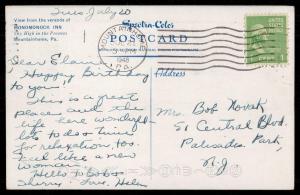 Tues, July 20
View from the veranda of
PONOMONOCK INN
Up High in the Poconos
Mountainhome, Pa.
Spectra-Color
POSTCARD
Address
PA.
1948
1
Dear Elaine,
"Happy Birthday
to you".
This is a great
place and the
life here wonderful—
lots to do + time
for relaxation, too.
Feel like a new
woman.
Hello to Bob,
Love, Helen
Mrs. Bob Novak
51 Central Blvd.
Palisades Park,
N.J.